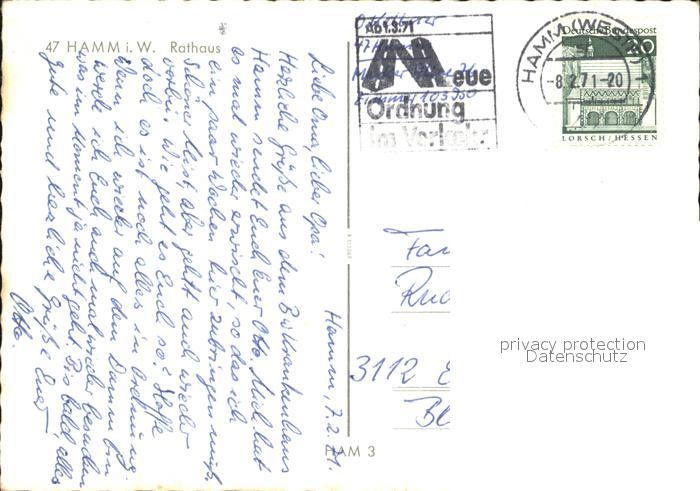 47 HAMM i. W. Rathaus
Hamm, 7.2.71.
Liebe Oma, lieber Opa!
Herzliche Grüße aus dem
Hamm sendet Euch Euer Otto. Mich hat
es mal wieder erwischt, so das ich
ein paar Wochen hier zubringen muß.
Schöner Mist, aber geht auch wieder
vorbei. Wie geht es Euch so? Hoffe
doch es ist noch alles in Ordnung.
Wenn ich wieder auf dem Damm bin
werde ich Euch auch mal wieder besuchen
was im Moment ja nicht geht. Bis bald, alles
gute und herzliche Grüße Euer
Otto.
HAM 3
Ab 1.3.71
Neue
Ordnung
im Verkehr
HAMM (WESTF) 1
-8.2.71-20
Deutsche Bundespost
20
LORSCH/HESSEN
Fam
3112 E
privacy protection
Datenschutz